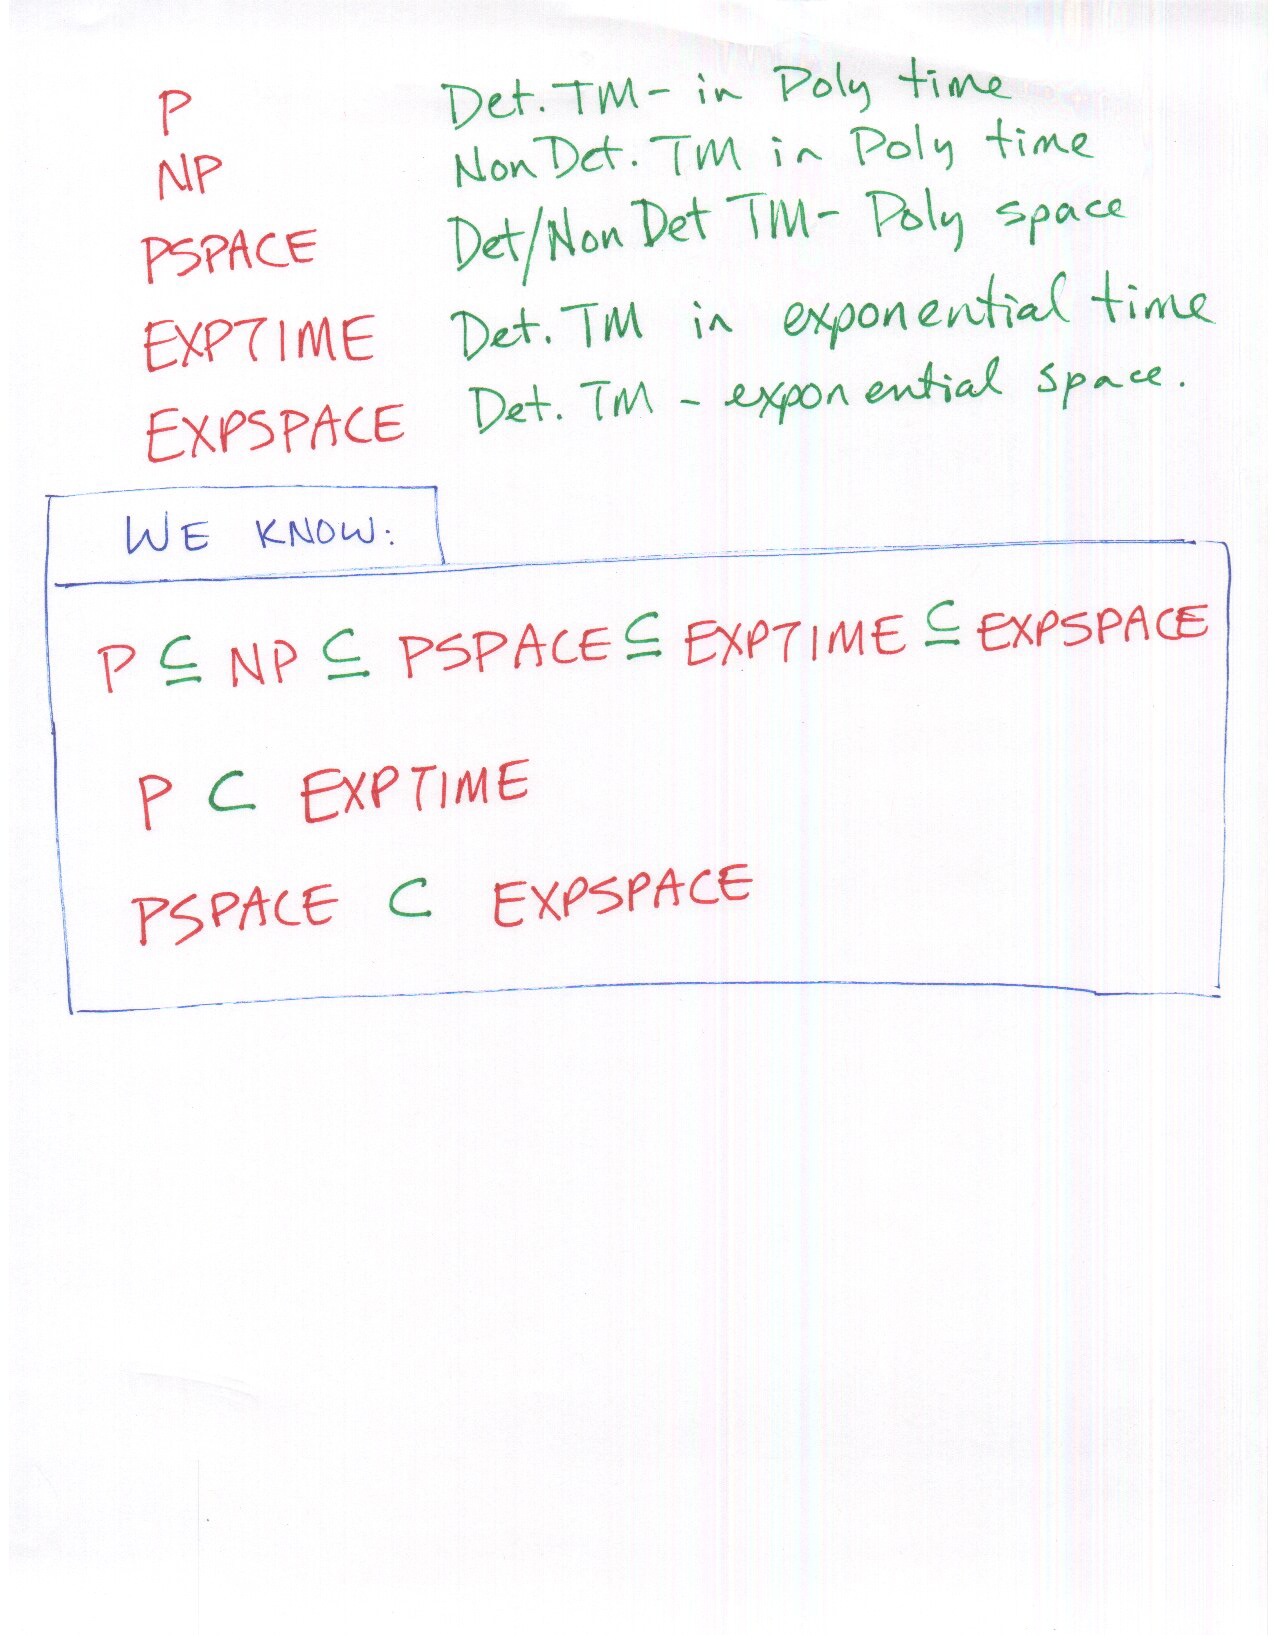 P Det. TM - in Poly time
NP Non Det. TM in Poly time
PSPACE Det/Non Det TM - Poly space
EXPTIME Det. TM in exponential time
EXPSPACE Det. TM - exponential space.
WE KNOW:
P ⊆ NP ⊆ PSPACE ⊆ EXPTIME ⊆ EXPSPACE
P ⊂ EXPTIME
PSPACE ⊂ EXPSPACE